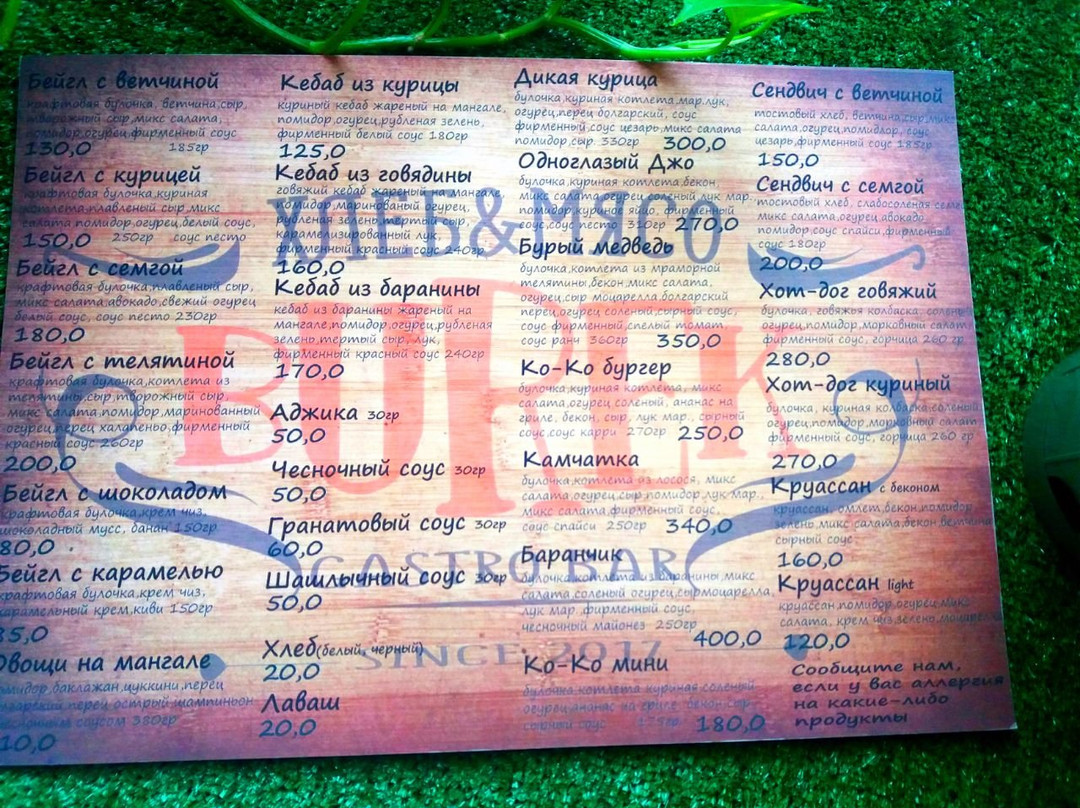 Бейгл с ветчиной
крафтовая булочка, ветчина,сыр,
творожный сыр,микс салата,
помидор,огурец,фирменный соус
130,0 185гр
Бейгл с курицей
крафтовая булочка,куриная
котлета,плавленый сыр,микс
салата,помидор,огурец,белый соус,
150,0 250гр соус песто
Бейгл с семгой
крафтовая булочка,плавленый сыр,
микс салата,авокадо,свежий огурец
белый соус, соус песто 230гр
180,0
Бейгл с телятиной
крафтовая булочка,котлета из
телятины,сыр,творожный сыр,
микс салата,помидор,маринованный
огурец,перец халапеньо,фирменный
красный соус 260гр
200,0
Бейгл с шоколадом
крафтовая булочка,крем чиз,
шоколадный мусс, банан 150гр
80,0
Бейгл с карамелью
крафтовая булочка,крем чиз,
карамельный крем,киви 150гр
85,0
Овощи на мангале
помидор,баклажан,цуккини,перец
острый шампиньон
соусом 380гр
10,0
Кебаб из курицы
куриный кебаб жареный на мангале,
помидор,огурец,рубленая зелень,
фирменный белый соус 180гр
125,0
Кебаб из говядины
говяжий кебаб жареный на мангале,
помидор,маринованый огурец,
рубленая зелень,тертый сыр,
карамелизированый лук,
фирменный красный соус 240гр
160,0
Кебаб из баранины
кебаб из баранины жареный на
мангале,помидор,огурец,рубленая
зелень,тертый сыр,лук,
фирменный красный соус 240гр
170,0
Аджика 30гр
50,0
Чесночный соус 30гр
50,0
Гранатовый соус 30гр
60,0
Шашлычный соус 30гр
50,0
Хлеб(белый, черный)
20,0
Лаваш
20,0
Дикая курица
булочка,куриная котлета,мар.лук,
огурец,перец болгарский, соус
фирменный,соус цезарь,микс салата
помидор,сыр 330гр 300,0
Одноглазый Джо
булочка,куриная котлета,бекон,
лук мар.
помидор,куриное яйцо, фирменный
соус,соус песто 310гр 270,0
Бурый медведь
булочка,котлета из мраморной
телятины,бекон,микс салата,
огурец,сыр моцарелла,болгарский
перец,огурец соленый,сырный соус,
соус фирменный,спелый томат
соус ранч 360гр 350,0
Ко-Ко бургер
булочка,куриная котлета, микс
салата,огурец соленый, ананас на
гриле, бекон, сыр, лук мар., сырный
соус,соус карри 270гр 250,0
Камчатка
булочка,котлета из лосося, микс
салата,огурец,сыр,помидор,лук мар.,
микс салата,фирменный соус,
соус спайси 250гр 340,0
Баранчик
булочка,котлета из баранины,микс
салата,соленый огурец,сыр моцарелла,
лук мар.,фирменный соус,
чесночный майонез 250гр
400,0
Ко-Ко мини
булочка,котлета куриная соленый
огурец,ананас на гриле, бекон,сыр
сырный соус 175гр 180,0
Сендвич с ветчиной
тостовый хлеб, ветчина,сыр,микс
салата,огурец,помидор, соус
цезарь,фирменный соус 185гр
150,0
Сендвич с семгой
тостовый хлеб, слабосоленая семга
микс салата,огурец,авокадо
помидор,соус спайси,фирменный
соус 180гр
200,0
Хот-дог говяжий
булочка, говяжья колбаска, солены
огурец,помидор,морковный салат
фирменный соус, горчица 260 гр
280,0
Хот-дог куриный
булочка, куриная колбаска,соленый
огурец,помидор,морковный салат
фирменный соус, горчица 260 гр
270,0
Круассан с беконом
круассан, омлет,бекон,помидор
зелень,микс салата,бекон,ветчина
сырный соус
160,0
Круассан light
круассан,помидор,огурец,микс
салата, крем чиз,зелень,моцарелла
120,0
Сообщите нам,
если у вас аллергия
на какие-либо
продукты
ХЛЕБ&МЯСО
GASTRO BAR
SINCE 2017